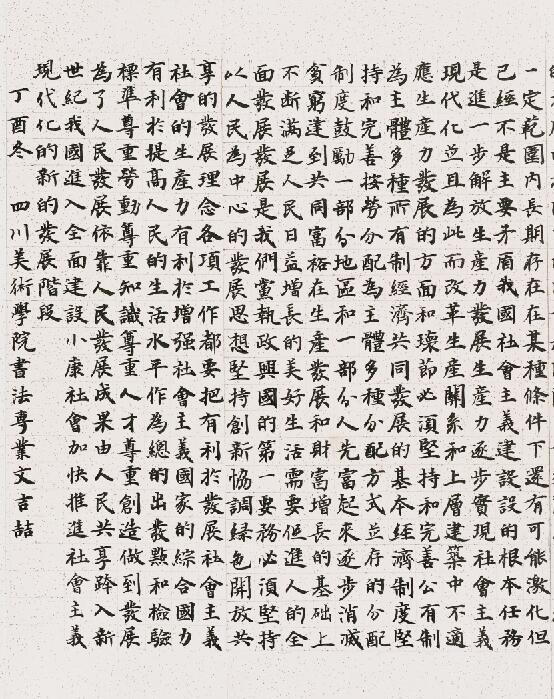 一定範圍內長期存在在某種條件下還有可能激化但
己經不是主要矛盾我國社會主義建設設的根本任務
是進一步解放生產力發展生產力逐步實現社會主義
現代化並且為此而改革生產關系和上層建築中不適
應生產力發展的方面和環節必須堅持和完善公有制
為主體多種所有制經濟共同發展的基本經濟制度堅
持和完善按勞分配為主體多種分配方式並存的分配
制度鼓勵一部分地區和一部分人先富起來逐步消滅
貧窮達到共同富裕在生產發展和財富增長的基础上
不斷滿足人民日益增長的美好生活需要促進人的全
面發展發展是我們黨執政興國的第一要務必須堅持
以人民為中心的發展思想堅持創新協調緑色開放共
享的發展理念各項工作都要把有利於發展社會主義
社會的生產力有利於增强社會主義國家的綜合國力
有利於提高人民的生活水平作為總的出發點和檢驗
標準尊重勞動尊重知識尊重人才尊重創造做到發展
為了人民發展依靠人民發展成果由人民共享跨入新
世紀我國進入全面建設小康社會加快推進社會主義
現代化的新的發展階段
丁酉冬 四川美術學院書法專業文吉喆